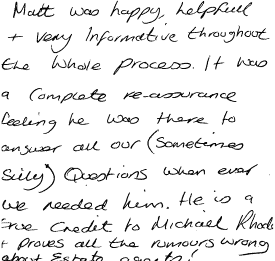 Matt was happy, helpfull
+ very Informative throughout
the whole process. It was
a complete re-assurance
feeling he was there to
answer all our (Sometimes
Silly) Questions when ever
we needed him. He is a
True Credit to Michael Rhode
+ proves all the rumours wrong
about Estate agents!